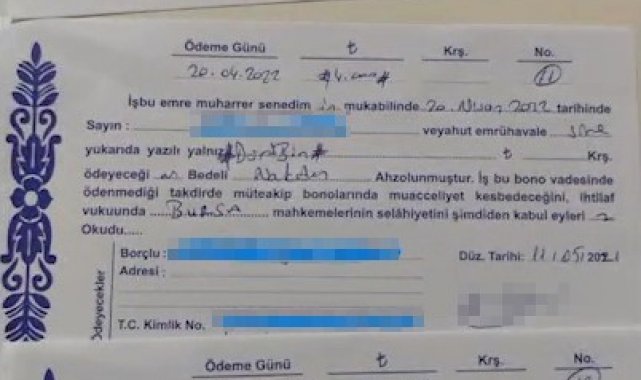 Ödeme Günü ₺ Krş. No.
20.04.2022 #4.000# 11
İşbu emre muharrer senedim in mukabilinde 20 Nisan 2022 tarihinde
Sayın : veyahut emrühavale sine
yukarıda yazılı yalnız #DörtBin# ₺ Krş.
ödeyeceği Bedeli Nakden Ahzolunmuştur. İş bu bono vadesinde
ödenmediği takdirde müteakip bonolarında muacceliyet kesbedeceğini, ihtilaf
vukuunda BURSA mahkemelerinin selâhiyetini şimdiden kabul eyleri
Okudu.....
Ödeyecekler
Borçlu : Düz. Tarihi: 11.05.2021
Adresi :
T.C. Kimlik No.
Ödeme Günü ₺ Krş. No.